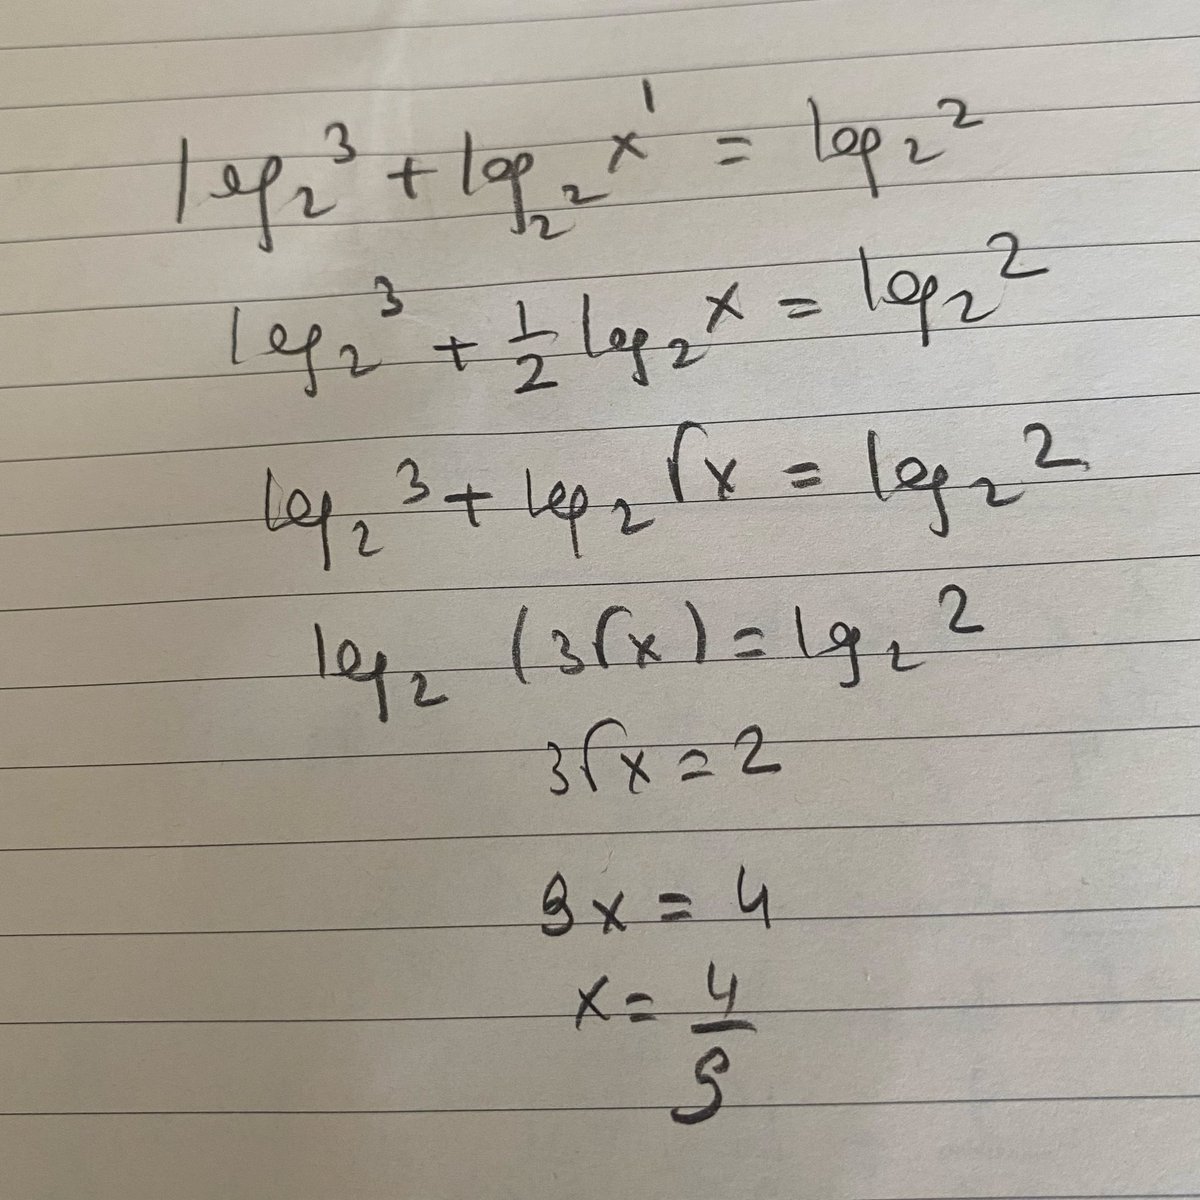 log₂ 3 + log₂² x¹ = log₂ 2
log₂ 3 + 1/2 log₂ x = log₂ 2
log₂ 3 + log₂ √x = log₂ 2
log₂ (3√x) = log₂ 2
3√x = 2
9x = 4
x = 4/9